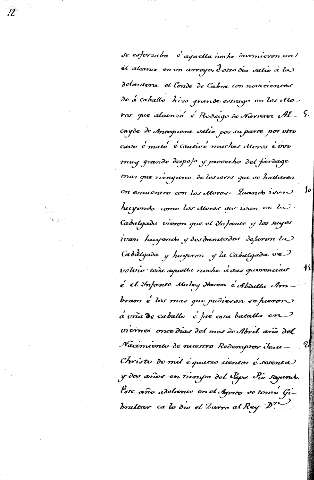 12
se esforzaba é aquella noche durmieron en
él alcance en un arroyo; é otro dia salió á la
delantera el Conde de Cabra con
de á caballo hizo grande estrago en los Mo-
ros que alcanzó é Rodrigo de Narvaez Al- 5.
cayde de Antequera salió por su parte por otro
cabo é mató é cautivó muchos Moros é ovo
muy grande despojo y provecho del fardage
mas que ninguno de los otros que se hallaron
en encuentro con los Moros. Quando ivan 10
huyendo como los Moros que ivan en la
Cabalgada vieron que el Infante y los suyos
ivan huyendo y desbaratados dejaron la
Cabalgada y huyeron y la Cabalgada se
volvió toda aquella noche á sus querencias 15
é el Infante Muley Hacen é Abdalla Am-
bran é los mas que pudieron se fueron
á uña de caballo é fué esta batalla en
viernes once dias del mes de Abril año del
Nacimiento de nuestro Redemptor Jesu- 20
Christo de mil é quatro cientos é sesenta
y dos años en tiempo del Papa Pio segundo.
Este año adelante en el Agosto se tomó Gi-
braltar ca lo dió el Moro al Rey Dn.